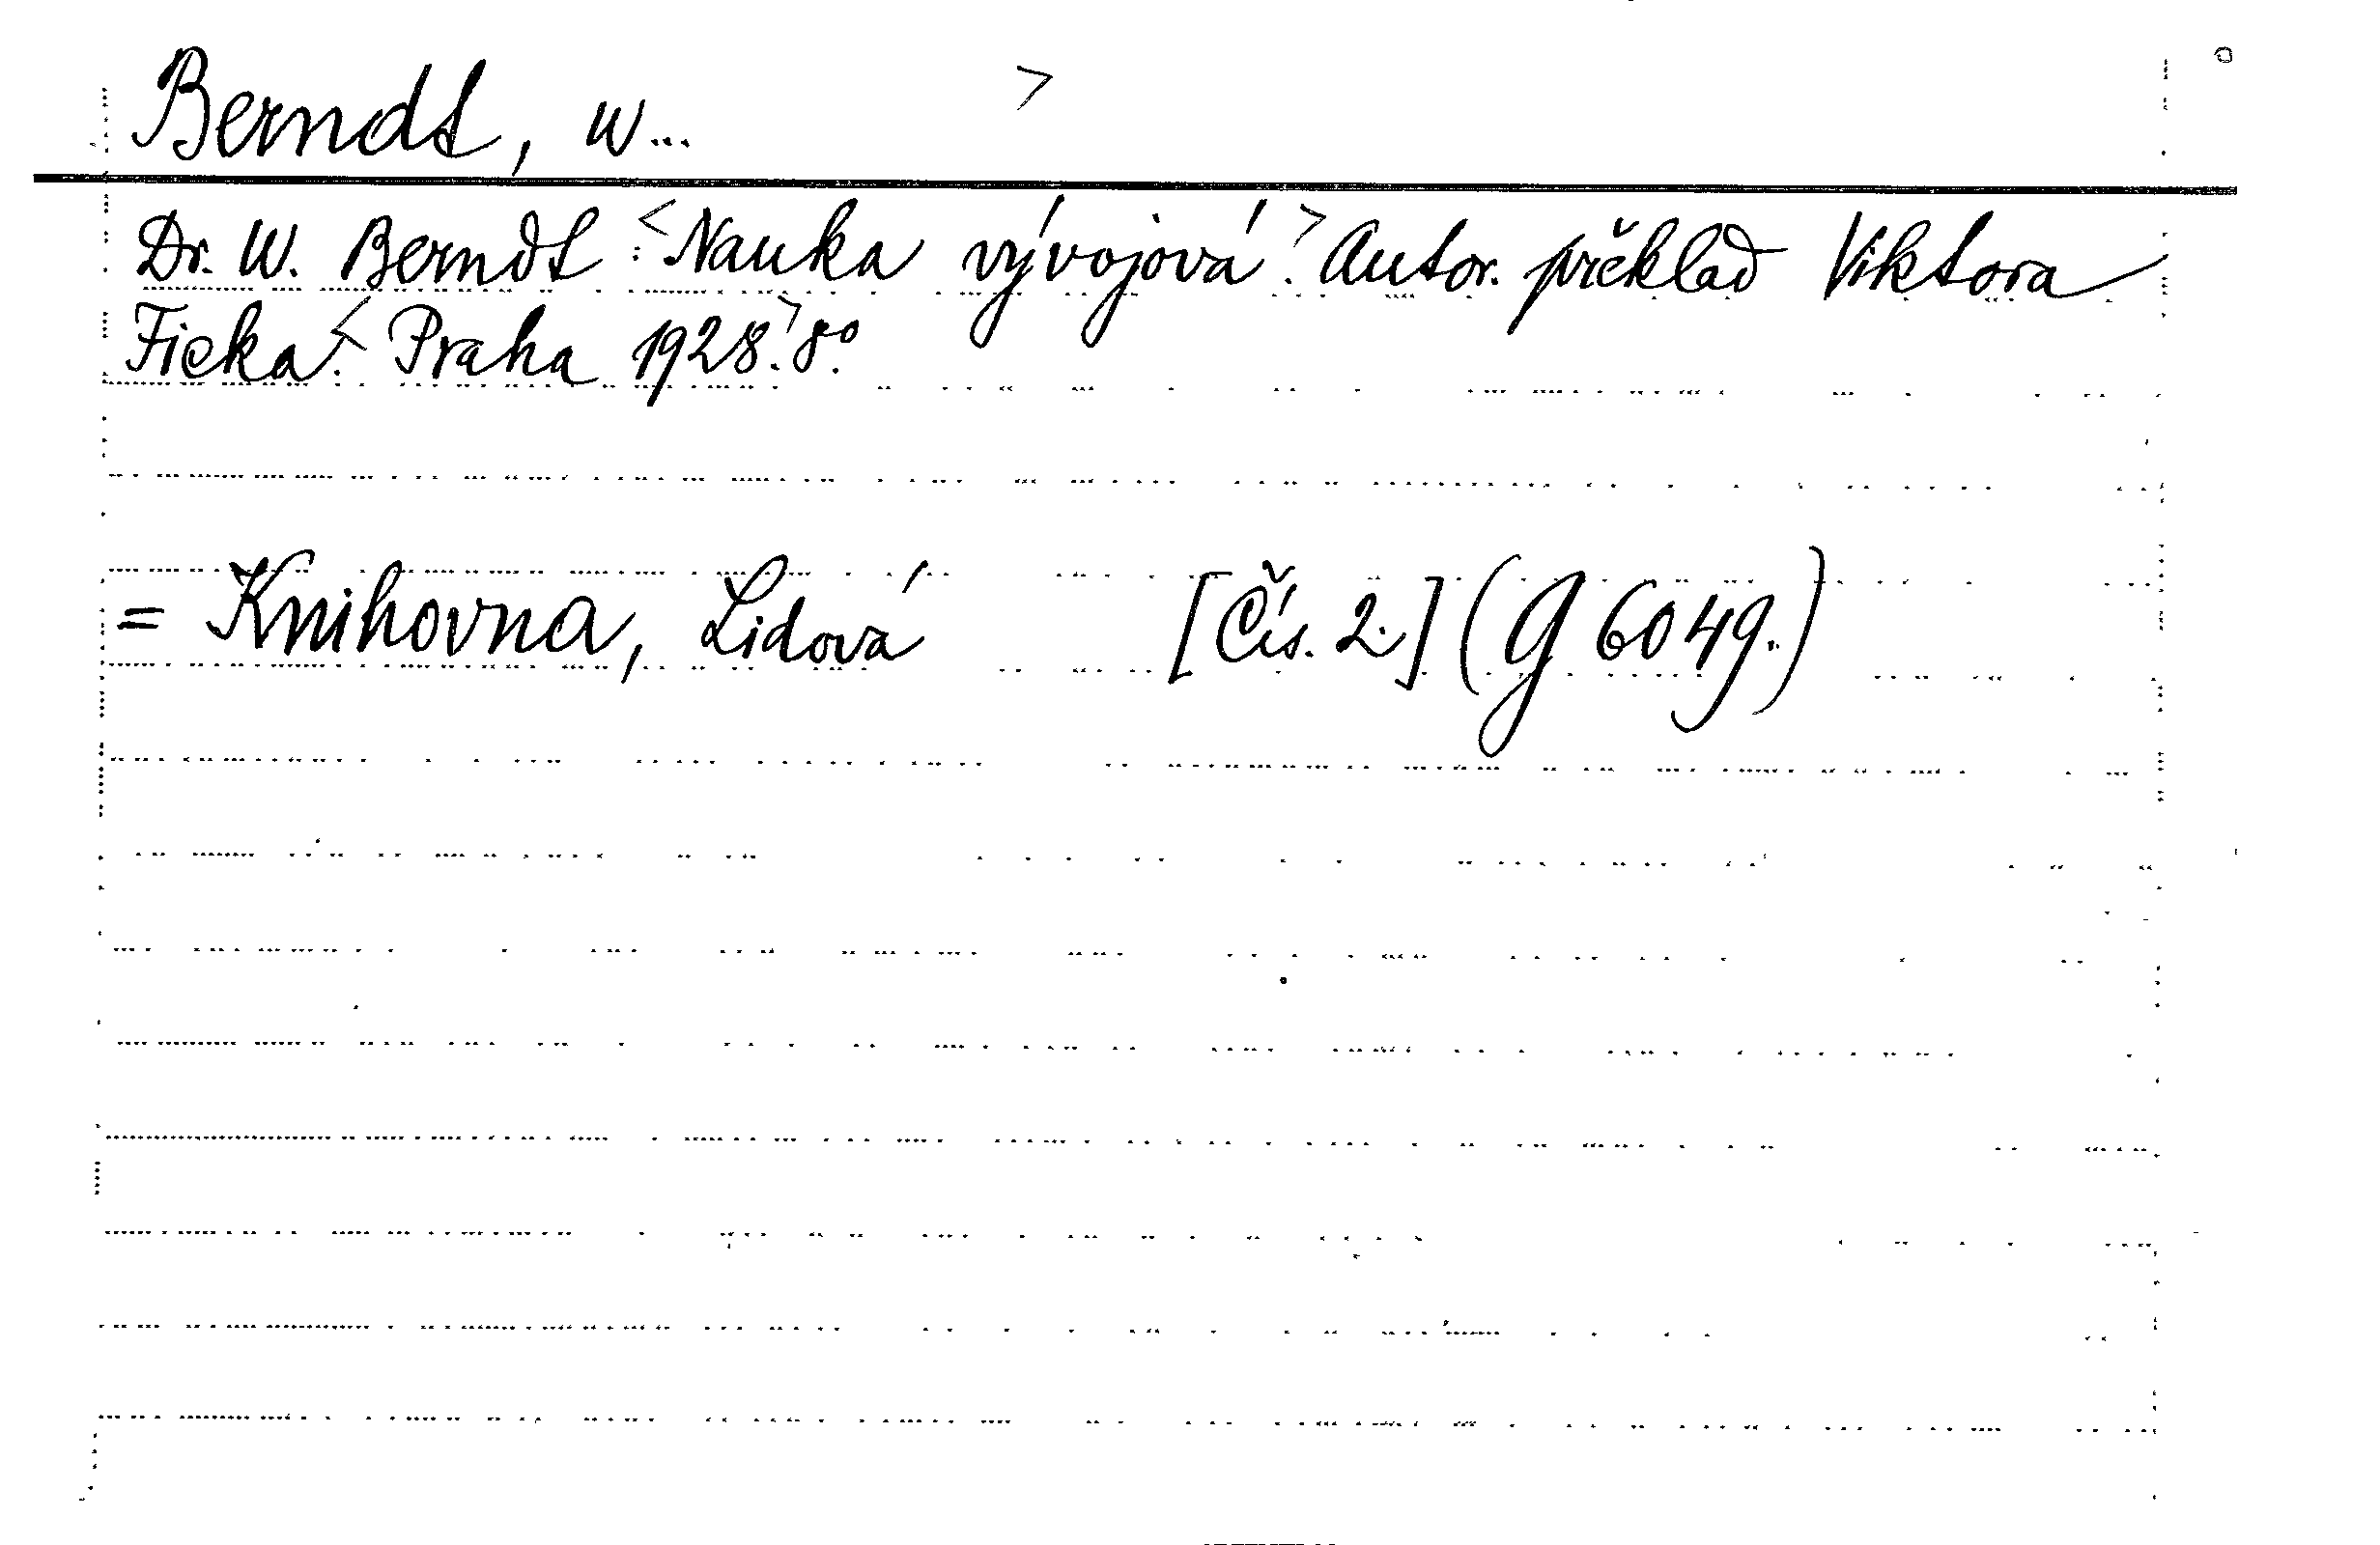 Berndt, W... >
Dr. W. Berndt: <Nauka vývojová.> Autor. překlad Viktora
Ficka.< Praha 1928.> 8º.
= Knihovna, Lidová [Čís. 2.] (G 6049.)